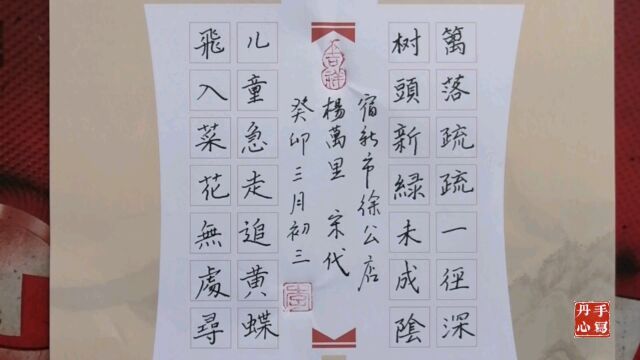 篱落疏疏一徑深
树頭新緑未成陰
宿新市徐公店
楊萬里 宋代
癸卯三月初三
儿童急走追黄蝶
飛入菜花無處尋
手写丹心